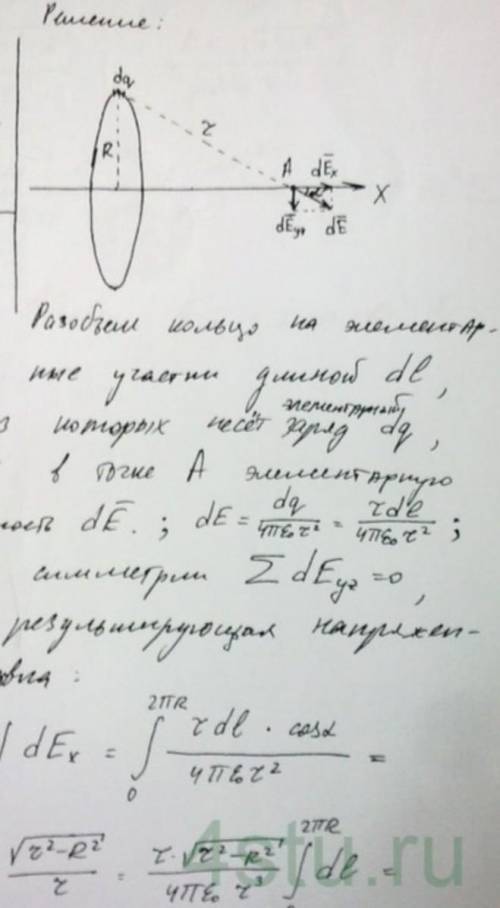 Решение:
dq
R
r
A
dE̅ₓ
α
X
dE̅yz
dE̅
Разобьем кольцо на элементар-
ные участки длиной dl,
элементарный
которых несёт заряд dq,
в точке A элементарную
ность dE̅. ; dE = dq/(4πε₀r²) = τdl/(4πε₀r²) ;
симметрии Σ dEyz = 0,
результирующая напряжен-
вна :
∫ dEₓ = ∫₀^{2πR} (τ dl · cosα)/(4πε₀r²) =
√(r²-R²)/r = (τ·√(r²-R²))/(4πε₀ r³) ∫^{2πR} dl =
4stu.ru